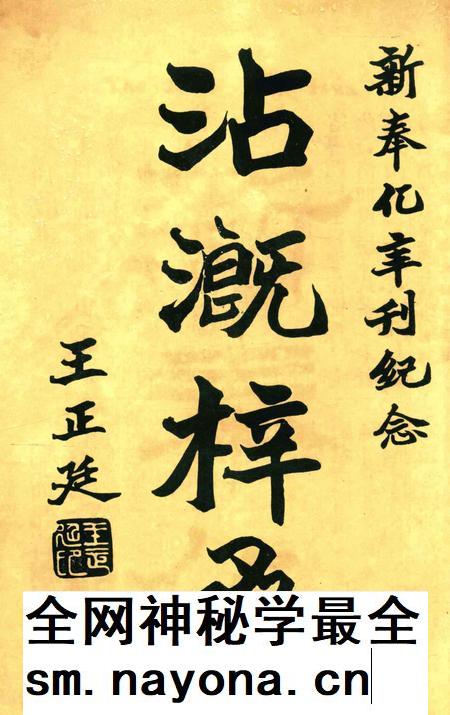 新奉化年刊紀念
沾溉梓
王正廷
王正廷印
全网神秘学最全
sm.nayona.cn